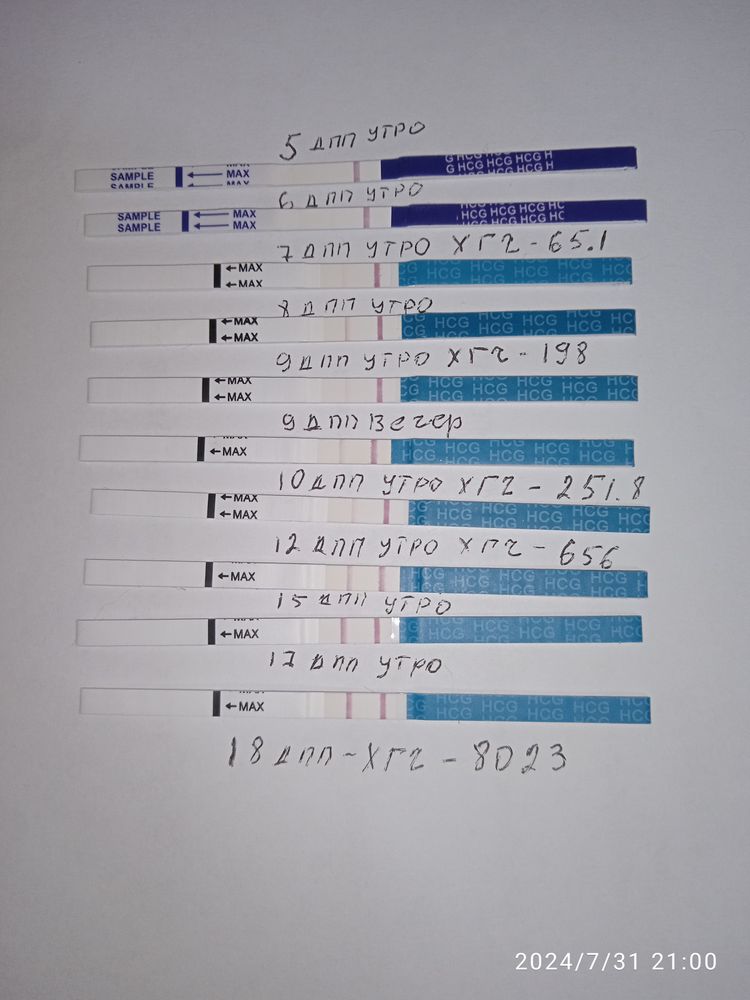 5 ДПП УТРО
SAMPLE MAX G HCG HCG HCG H
SAMPLE MAX G HCG HCG HCG H
SAMPLE MAX
6 ДПП УТРО
SAMPLE MAX HCG HCG HCG HC
SAMPLE MAX HCG HCG HCG HC
7 ДПП УТРО ХГЧ - 65.1
MAX HCG HCG HCG HCG
MAX
8 ДПП УТРО
MAX CG HCG HCG HCG HC
MAX HCG HCG HCG HCG
9 ДПП УТРО ХГЧ - 198
MAX CG HCG HCG HCG HC
MAX HCG HCG HCG HCG
9 ДПП ВЕЧЕР
MAX HCG HCG HCG HCG
10 ДПП УТРО ХГЧ - 251.8
MAX CG HCG HCG HCG HC
MAX HCG HCG HCG HCG
12 ДПП УТРО ХГЧ - 656
MAX HCG HCG HCG HCG
15 ДПП УТРО
MAX HCG HCG HCG HCG
MAX
17 ДПП УТРО
MAX HCG HCG HCG HCG
18 ДПП - ХГЧ - 8023
2024/7/31 21:00